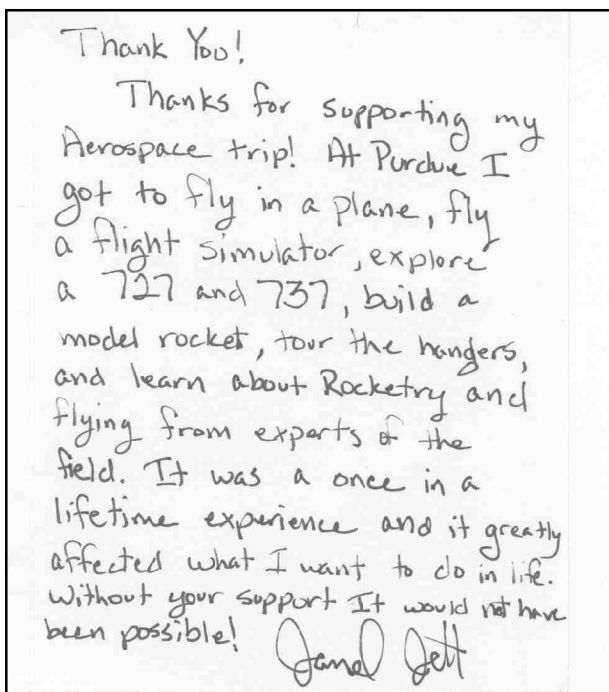 Thank You!
Thanks for supporting my
Aerospace trip! At Purdue I
got to fly in a plane, fly
a flight simulator, explore
a 727 and 737, build a
model rocket, tour the hangers,
and learn about Rocketry and
flying from experts of the
field. It was a once in a
lifetime experience and it greatly
affected what I want to do in life.
Without your support It would not have
been possible! Janel Jett